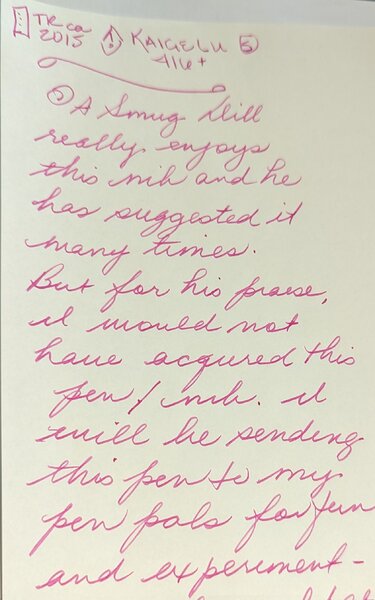 TR ca KAIGELU 5
2015 316+
A Smug Dill
really enjoys
this nib and he
has suggested it
many times.
But for his praise,
I would not
have acqured this
pen/nib. I
will be sending
this pen to my
pen pals for fun
and experiment-